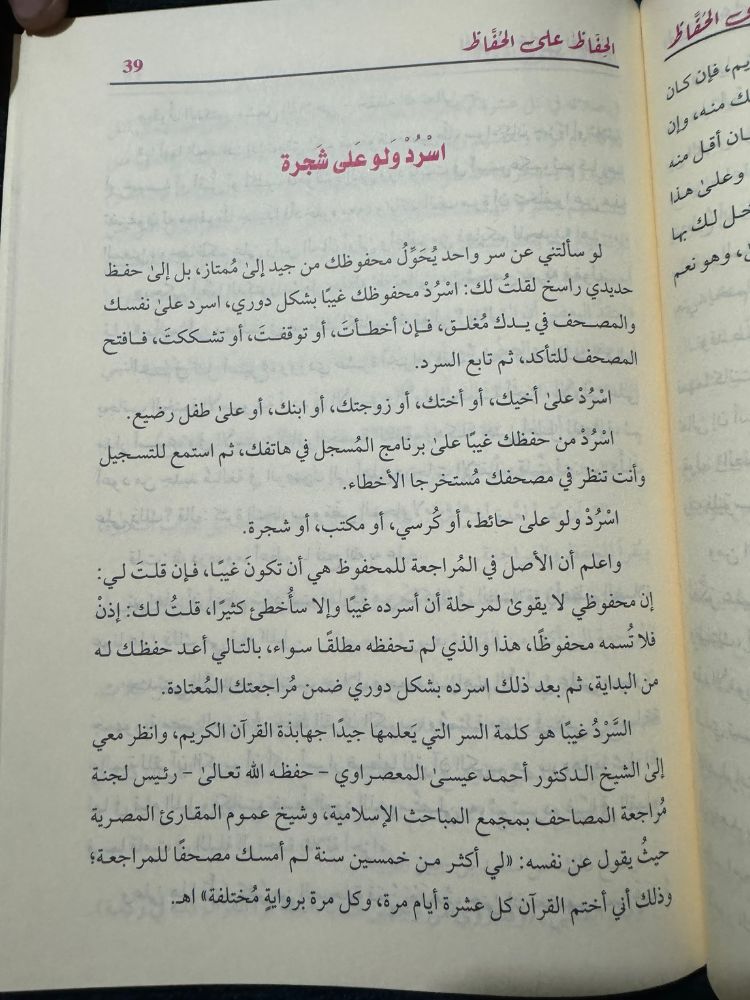 الحِفَّاظ على الحُفَّاظ
39
اسْرُدْ وَلو عَلى شَجرة
لو سألتني عن سر واحد يُحَوِّلُ محفوظك من جيد إلىٰ مُمتاز، بل إلىٰ حفظ
حديدي راسخ لقلتُ لك: اسْرُدْ محفوظك غيبًا بشكل دوري، اسرد علىٰ نفسك
والمصحف في يدك مُغلق، فإن أخطأتَ، أو توقفتَ، أو تشككتَ، فافتح
المصحف للتأكد، ثم تابع السرد.
اسْرُدْ علىٰ أخيك، أو أختك، أو زوجتك، أو ابنك، أو علىٰ طفل رضيع.
اسْرُدْ من حفظك غيبًا علىٰ برنامج المُسجل في هاتفك، ثم استمع للتسجيل
وأنت تنظر في مصحفك مُستخرجا الأخطاء.
اسْرُدْ ولو علىٰ حائط، أو كُرسي، أو مكتب، أو شجرة.
واعلم أن الأصل في المُراجعة للمحفوظ هي أن تكونَ غيبًا، فإن قلتَ لي:
إن محفوظي لا يقوىٰ لمرحلة أن أسرده غيبًا وإلا سأُخطئ كثيرًا، قلتُ لك: إذنْ
فلا تُسمه محفوظًا، هذا والذي لم تحفظه مطلقًا سواء، بالتالي أعد حفظك له
من البداية، ثم بعد ذلك اسرده بشكل دوري ضمن مُراجعتك المُعتادة.
السَّرْدُ غيبًا هو كلمة السر التي يَعلمها جيدًا جهابذة القرآن الكريم، وانظر معي
إلىٰ الشيخ الدكتور أحمد عيسىٰ المعصراوي – حفظه الله تعالىٰ – رئيس لجنة
مُراجعة المصاحف بمجمع المباحث الإسلامية، وشيخ عموم المقارئ المصرية
حيثُ يقول عن نفسه: «لي أكثر من خمسين سنة لم أمسك مصحفًا للمراجعة؛
وذلك أني أختم القرآن كل عشرة أيام مرة، وكل مرة بروايةٍ مُختلفة» اهـ.
فإن كان
ك منه، وإن
أقل منه
وعلىٰ هذا
لك بها
وهو نعم